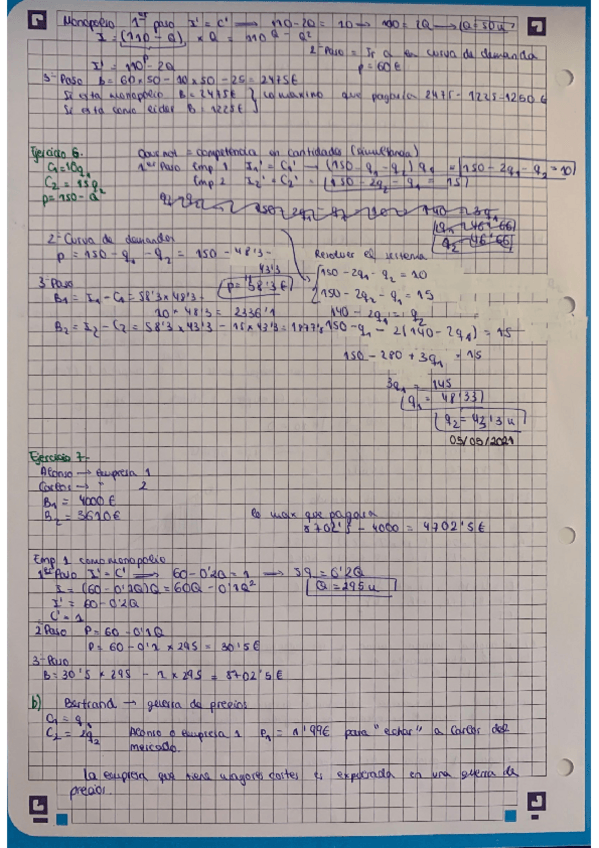 Monopolio 1er paso I' = C' → 110 - 2Q = 10 → 100 = 2Q → Q = 50 u
I = (110 - Q) × Q = 110Q - Q²
I' = 110 - 2Q
2º Paso = Ir a la curva de demanda
p = 60 €
3º Paso B = 60 × 50 - 10 × 50 - 25 = 2475 €
Si está monopolio B = 2475 €
Si está como líder B = 1225 €
Lo máximo que pagaría 2475 - 1225 = 1250 €
Ejercicio 6.
C1 = 10q1
C2 = 15q2
p = 150 - Q
Cournot = competencia en cantidades (simultánea)
1er Paso Emp 1 I1' = C1' → (150 - q1 - q2) q1 = 150 - 2q1 - q2 = 10
Emp 2 I2' = C2' = 150 - 2q2 - q1 = 15
2º Curva de demanda
p = 150 - q1 - q2 = 150 - 48'3 -
43'3
p = 58'3 €
3º Paso
B1 = I1 - C1 = 58'3 × 48'3 -
10 × 48'3 = 2336'1
B2 = I2 - C2 = 58'3 × 43'3 - 15 × 43'3 =
Resolver el sistema
150 - 2q1 - q2 = 10
150 - 2q2 - q1 = 15
140 - 2q1 = q2
150 - q1 - 2(140 - 2q1) = 15
150 - 280 + 3q1 = 15
3q1 = 145
q1 = 48'33
q2 = 43'3 u
05/05/2021
Ejercicio 7.
Alonso → empresa 1
Carlos → " 2
B1 = 4000 €
B2 = 3610 €
Lo max que pagaría
8702'5 - 4000 = 4702'5 €
Emp 1 como monopolio
1er Paso I' = C' → 60 - 0'2Q = 1 → 59 = 0'2Q
I = (60 - 0'1Q)Q = 60Q - 0'1Q²
Q = 295 u
I' = 60 - 0'2Q
C' = 1
2º Paso P = 60 - 0'1Q
P = 60 - 0'1 × 295 = 30'5 €
3º Paso
B = 30'5 × 295 - 1 × 295 = 8702'5 €
b) Bertrand → guerra de precios
C1 = q1
C2 = 2q2
Alonso o empresa 1 P1 = 1'99 € para "echar" a Carlos del
mercado.
La empresa que tiene mayores costes es expulsada en una guerra de
precios.